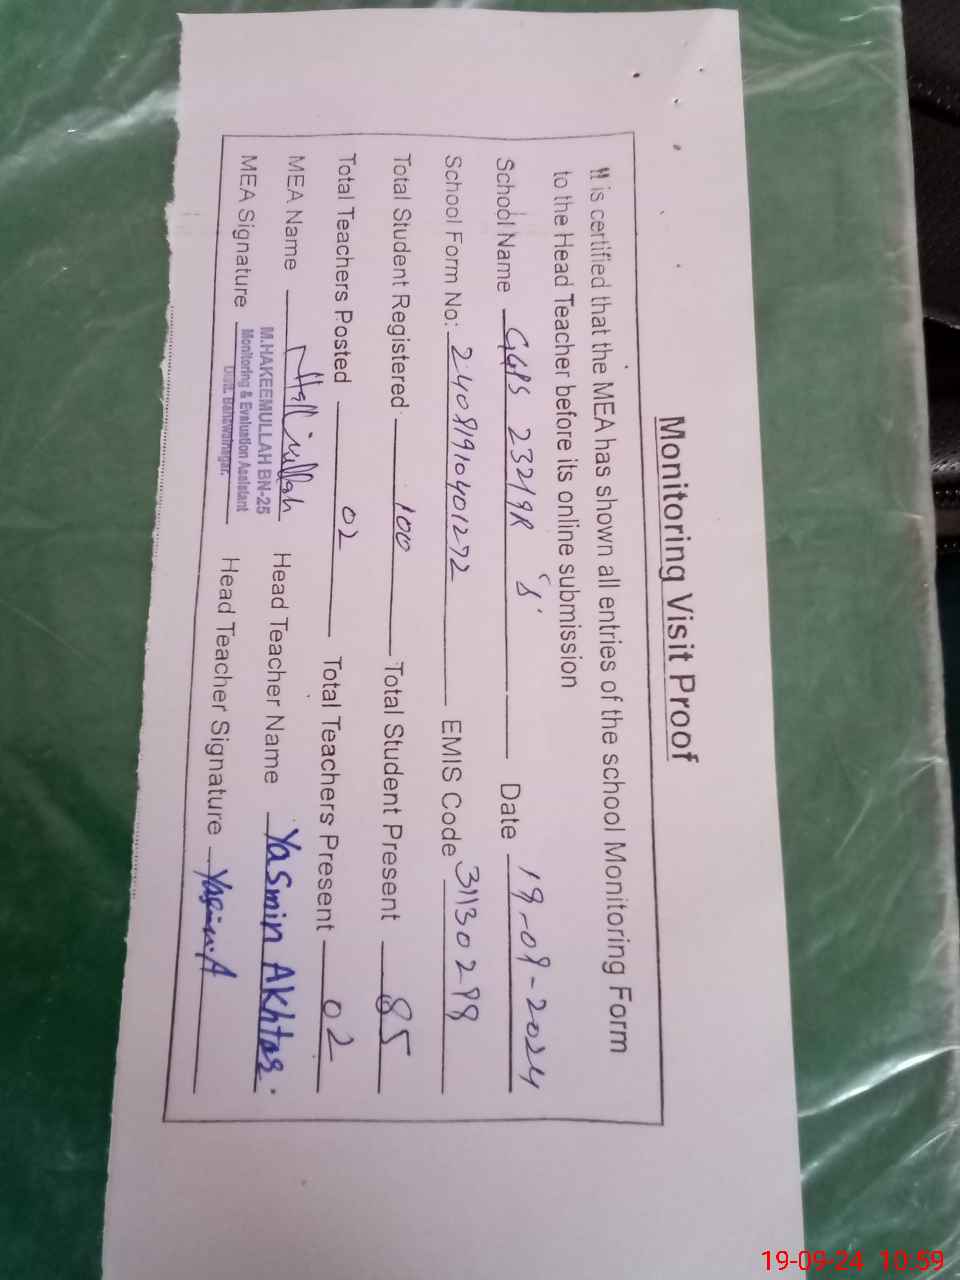 Monitoring Visit Proof
It is certified that the MEA has shown all entries of the school Monitoring Form
to the Head Teacher before its online submission
School Name GGPS 232/9R "S" Date 19-09-2024
School Form No: 24081910401272 EMIS Code 31130298
Total Student Registered 100 Total Student Present 85
Total Teachers Posted 02 Total Teachers Present 02
MEA Name Head Teacher Name Yasmin Akhtar.
M.HAKEEMULLAH BN-25
MEA Signature Monitoring & Evaluation Assistant Head Teacher Signature Yasmin.A
Distt. Bahawalnagar.
19-09-24 10:59